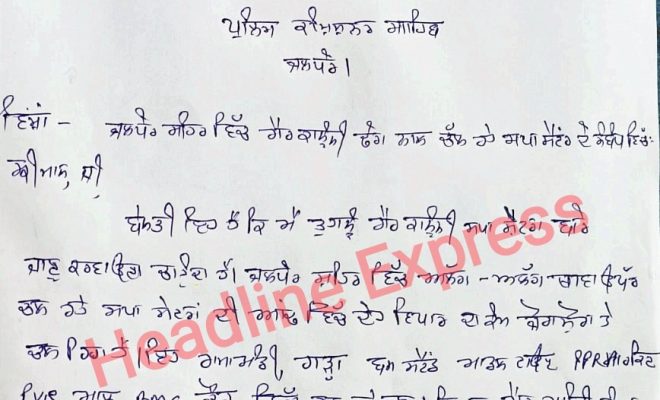 ਪੁਲਿਸ ਕਮਿਸ਼ਨਰ ਸਾਹਿਬ
ਜਲੰਧਰ।
ਵਿਸ਼ਾ - ਜਲੰਧਰ ਸ਼ਹਿਰ ਵਿੱਚ ਗੈਰ ਕਾਨੂੰਨੀ ਢੰਗ ਨਾਲ ਚੱਲ ਰਹੇ ਸਪਾ ਸੈਂਟਰ ਦੇ ਸੰਬੰਧ ਵਿੱਚ
ਸ਼੍ਰੀਮਾਨ ਜੀ,
ਬੇਨਤੀ ਇਹ ਹੈ ਕਿ ਮੈਂ ਤੁਹਾਨੂੰ ਗੈਰ ਕਾਨੂੰਨੀ ਸਪਾ ਸੈਂਟਰਾਂ ਬਾਰੇ
ਜਾਣੂ ਕਰਵਾਉਣਾ ਚਾਹੁੰਦਾ ਹਾਂ। ਜਲੰਧਰ ਸ਼ਹਿਰ ਵਿੱਚ ਅਲੱਗ-ਅਲੱਗ ਥਾਵਾਂ ਉੱਪਰ
ਚਲ ਰਹੇ ਸਪਾ ਸੈਂਟਰਾਂ ਦੀ ਆੜ ਵਿੱਚ ਦੇਹ ਵਿਪਾਰ ਦਾ ਕੰਮ ਜ਼ੋਰਾਂ ਤੇ
ਚਲ ਰਿਹਾ ਹੈ। ਇਹ ਗੜ੍ਹਾ ਬਸ ਸਟੈਂਡ ਮਾਡਲ ਟਾਊਨ PPR ਮਾਰਕਿਟ
Headline Express